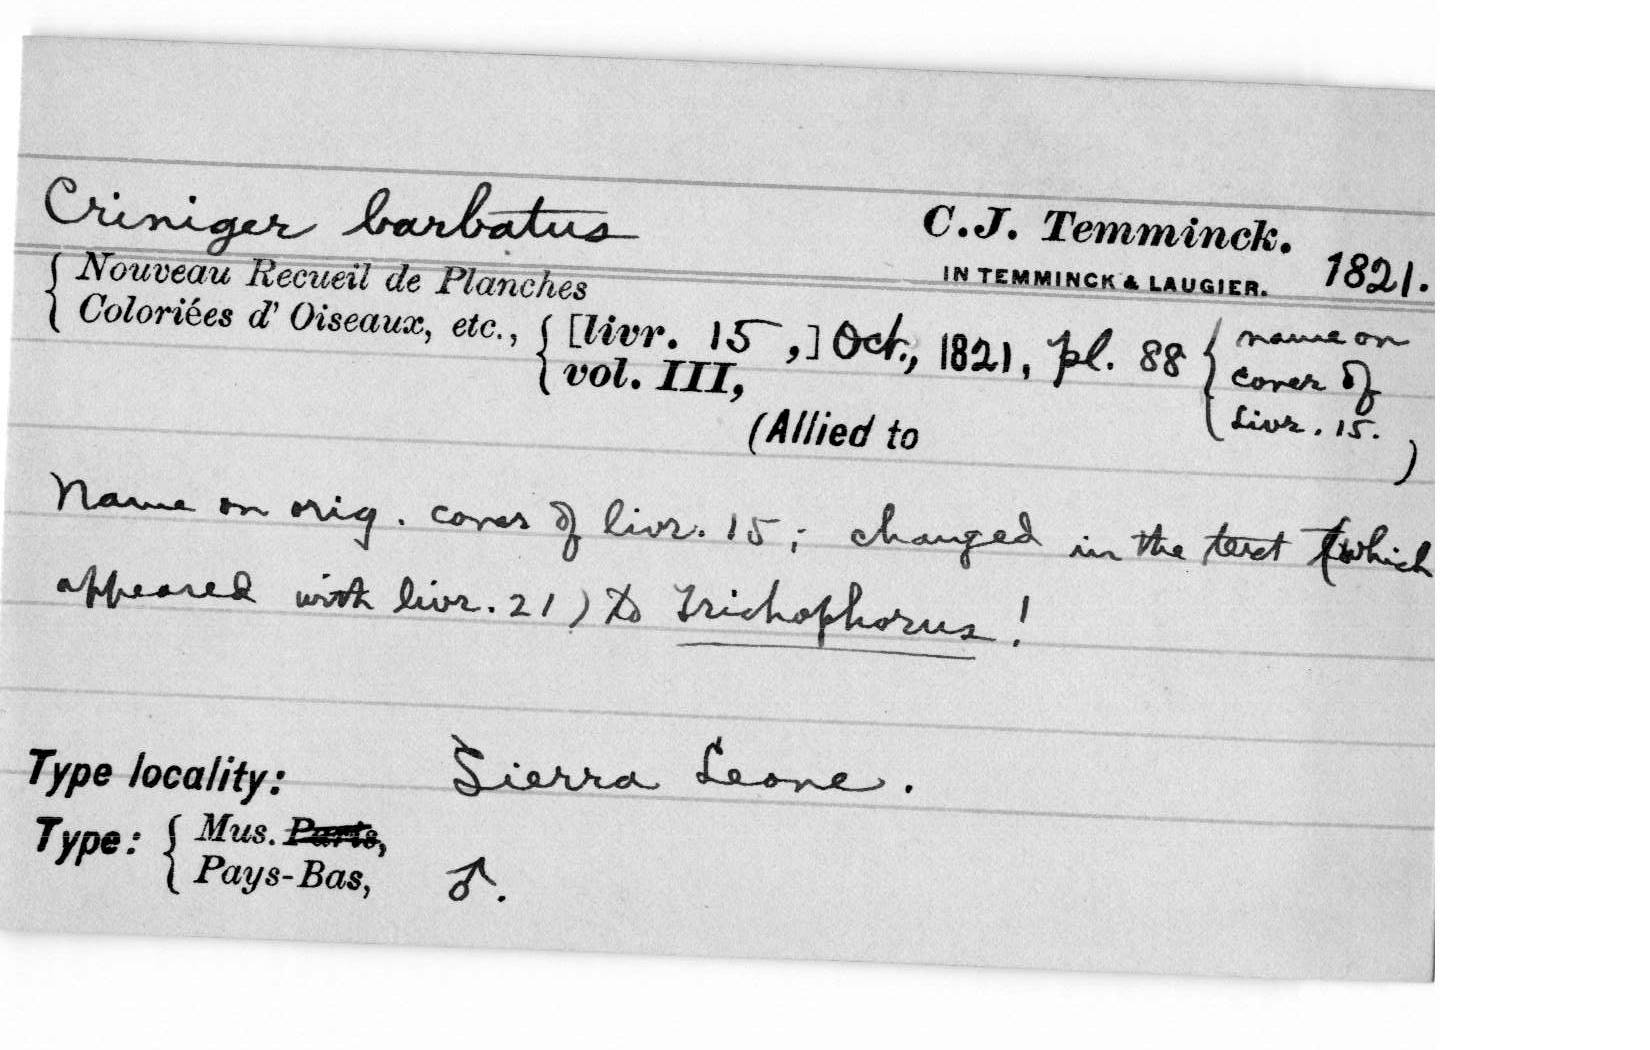 Criniger barbatus C.J. Temminck.
IN TEMMINCK & LAUGIER. 1821.
{ Nouveau Recueil de Planches
Coloriées d' Oiseaux, etc., { [livr. 15 ,] Oct., 1821, pl. 88 { name on
vol. III, cover of
(Allied to livr. 15. )
Name on orig. cover of livr. 15; changed in the text (which
appeared with livr. 21) to Trichophorus!
Type locality: Sierra Leone.
Type: { Mus. Paris,
Pays-Bas, ♂.